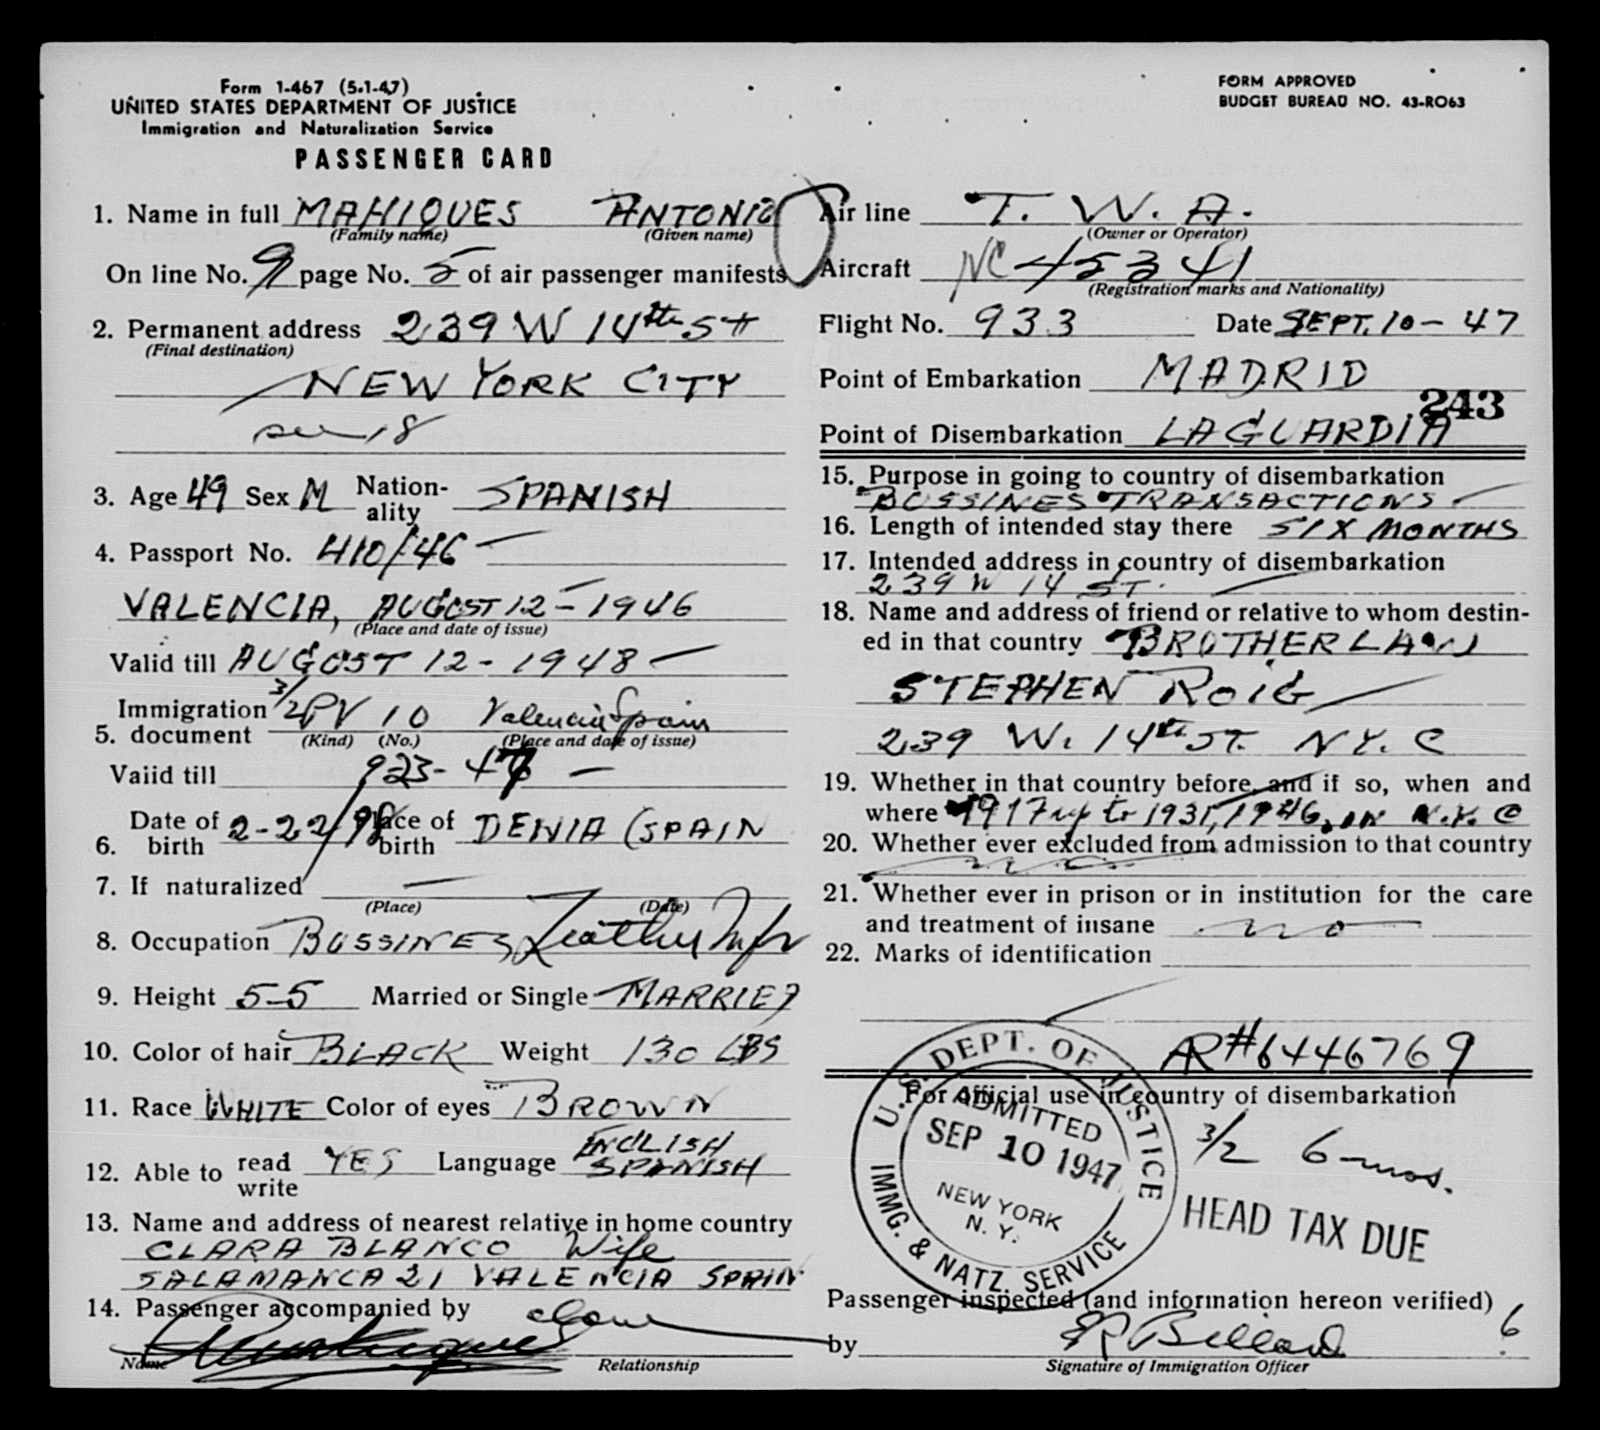 Form 1-467 (5-1-47)
UNITED STATES DEPARTMENT OF JUSTICE
Immigration and Naturalization Service
PASSENGER CARD
FORM APPROVED
BUDGET BUREAU NO. 43-RO63
1. Name in full MAHIQUES ANTONIO
(Family name) (Given name)
On line No. 9 page No. 5 of air passenger manifests
2. Permanent address 239 W 14th St
(Final destination)
NEW YORK CITY
see 18
3. Age 49 Sex M Nation-ality SPANISH
4. Passport No. 410/46
VALENCIA, AUGOST 12 - 1946
(Place and date of issue)
Valid till AUGOST 12 - 1948
Immigration 3/2 PV 10 Valencia Spain
5. document (Kind) (No.) (Place and date of issue)
Valid till 923-47
6. Date of birth 2-22/98 Place of birth DENIA (SPAIN
7. If naturalized
(Place) (Date)
8. Occupation BUSSINES Leather Mfr
9. Height 5-5 Married or Single MARRIED
10. Color of hair BLACK Weight 130 LBS
11. Race WHITE Color of eyes BROWN
12. Able to read write YES Language ENGLISH SPANISH
13. Name and address of nearest relative in home country
CLARA BLANCO Wife
SALAMANCA 21 VALENCIA SPAIN
14. Passenger accompanied by alone
Name Relationship
Air line T. W. A.
(Owner or Operator)
Aircraft NC 45341
(Registration marks and Nationality)
Flight No. 933 Date SEPT. 10 - 47
Point of Embarkation MADRID
243
Point of Disembarkation LAGUARDIA
15. Purpose in going to country of disembarkation
BUSSINES TRANSACTIONS
16. Length of intended stay there SIX MONTHS
17. Intended address in country of disembarkation
239 W 14 ST.
18. Name and address of friend or relative to whom destin-
ed in that country BROTHER LAW
STEPHEN ROIG
239 W. 14th ST. N.Y. C
19. Whether in that country before, and if so, when and
where 1917 up to 1931, 1946, IN N.Y. C
20. Whether ever excluded from admission to that country
no
21. Whether ever in prison or in institution for the care
and treatment of insane no
22. Marks of identification
AR# 6446769
For official use in country of disembarkation
U.S. DEPT. OF JUSTICE
ADMITTED
SEP 10 1947
NEW YORK
N. Y.
IMMG. & NATZ. SERVICE
3/2 6-mos.
HEAD TAX DUE
Passenger inspected (and information hereon verified)
6
by
Signature of Immigration Officer